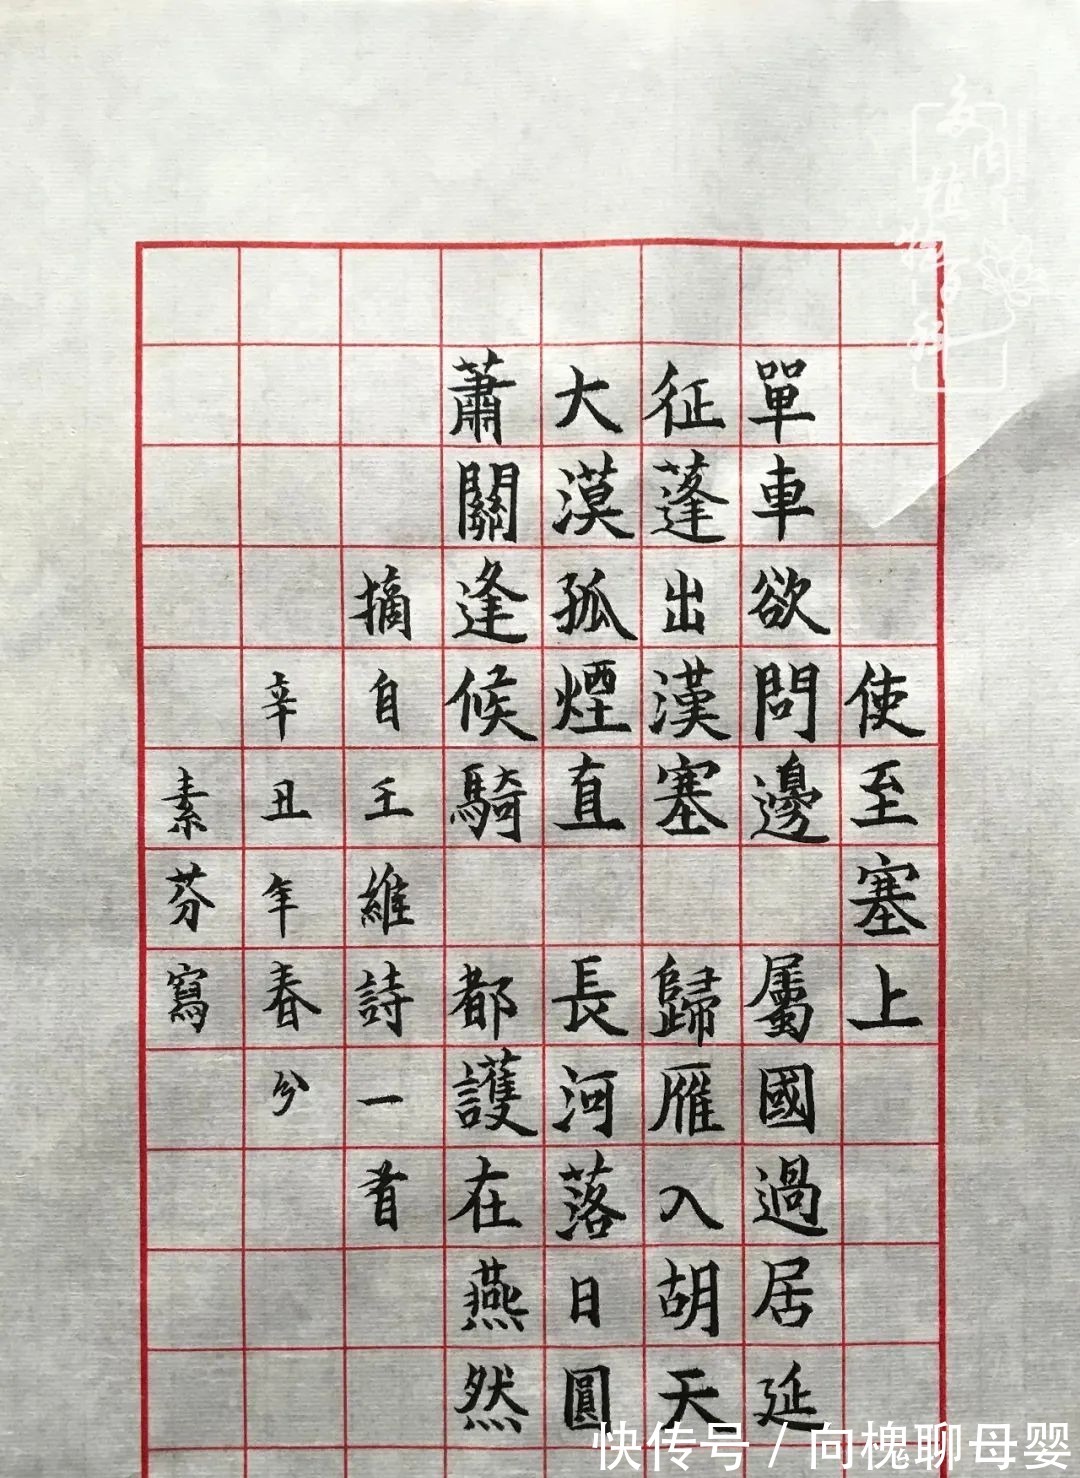 使至塞上
單車欲問邊 屬國過居延
征蓬出漢塞 歸雁入胡天
大漠孤煙直 長河落日圓
蕭關逢候騎 都護在燕然
摘自王維詩一首
辛丑年春分
素芬寫
快传号 / 向槐聊母婴